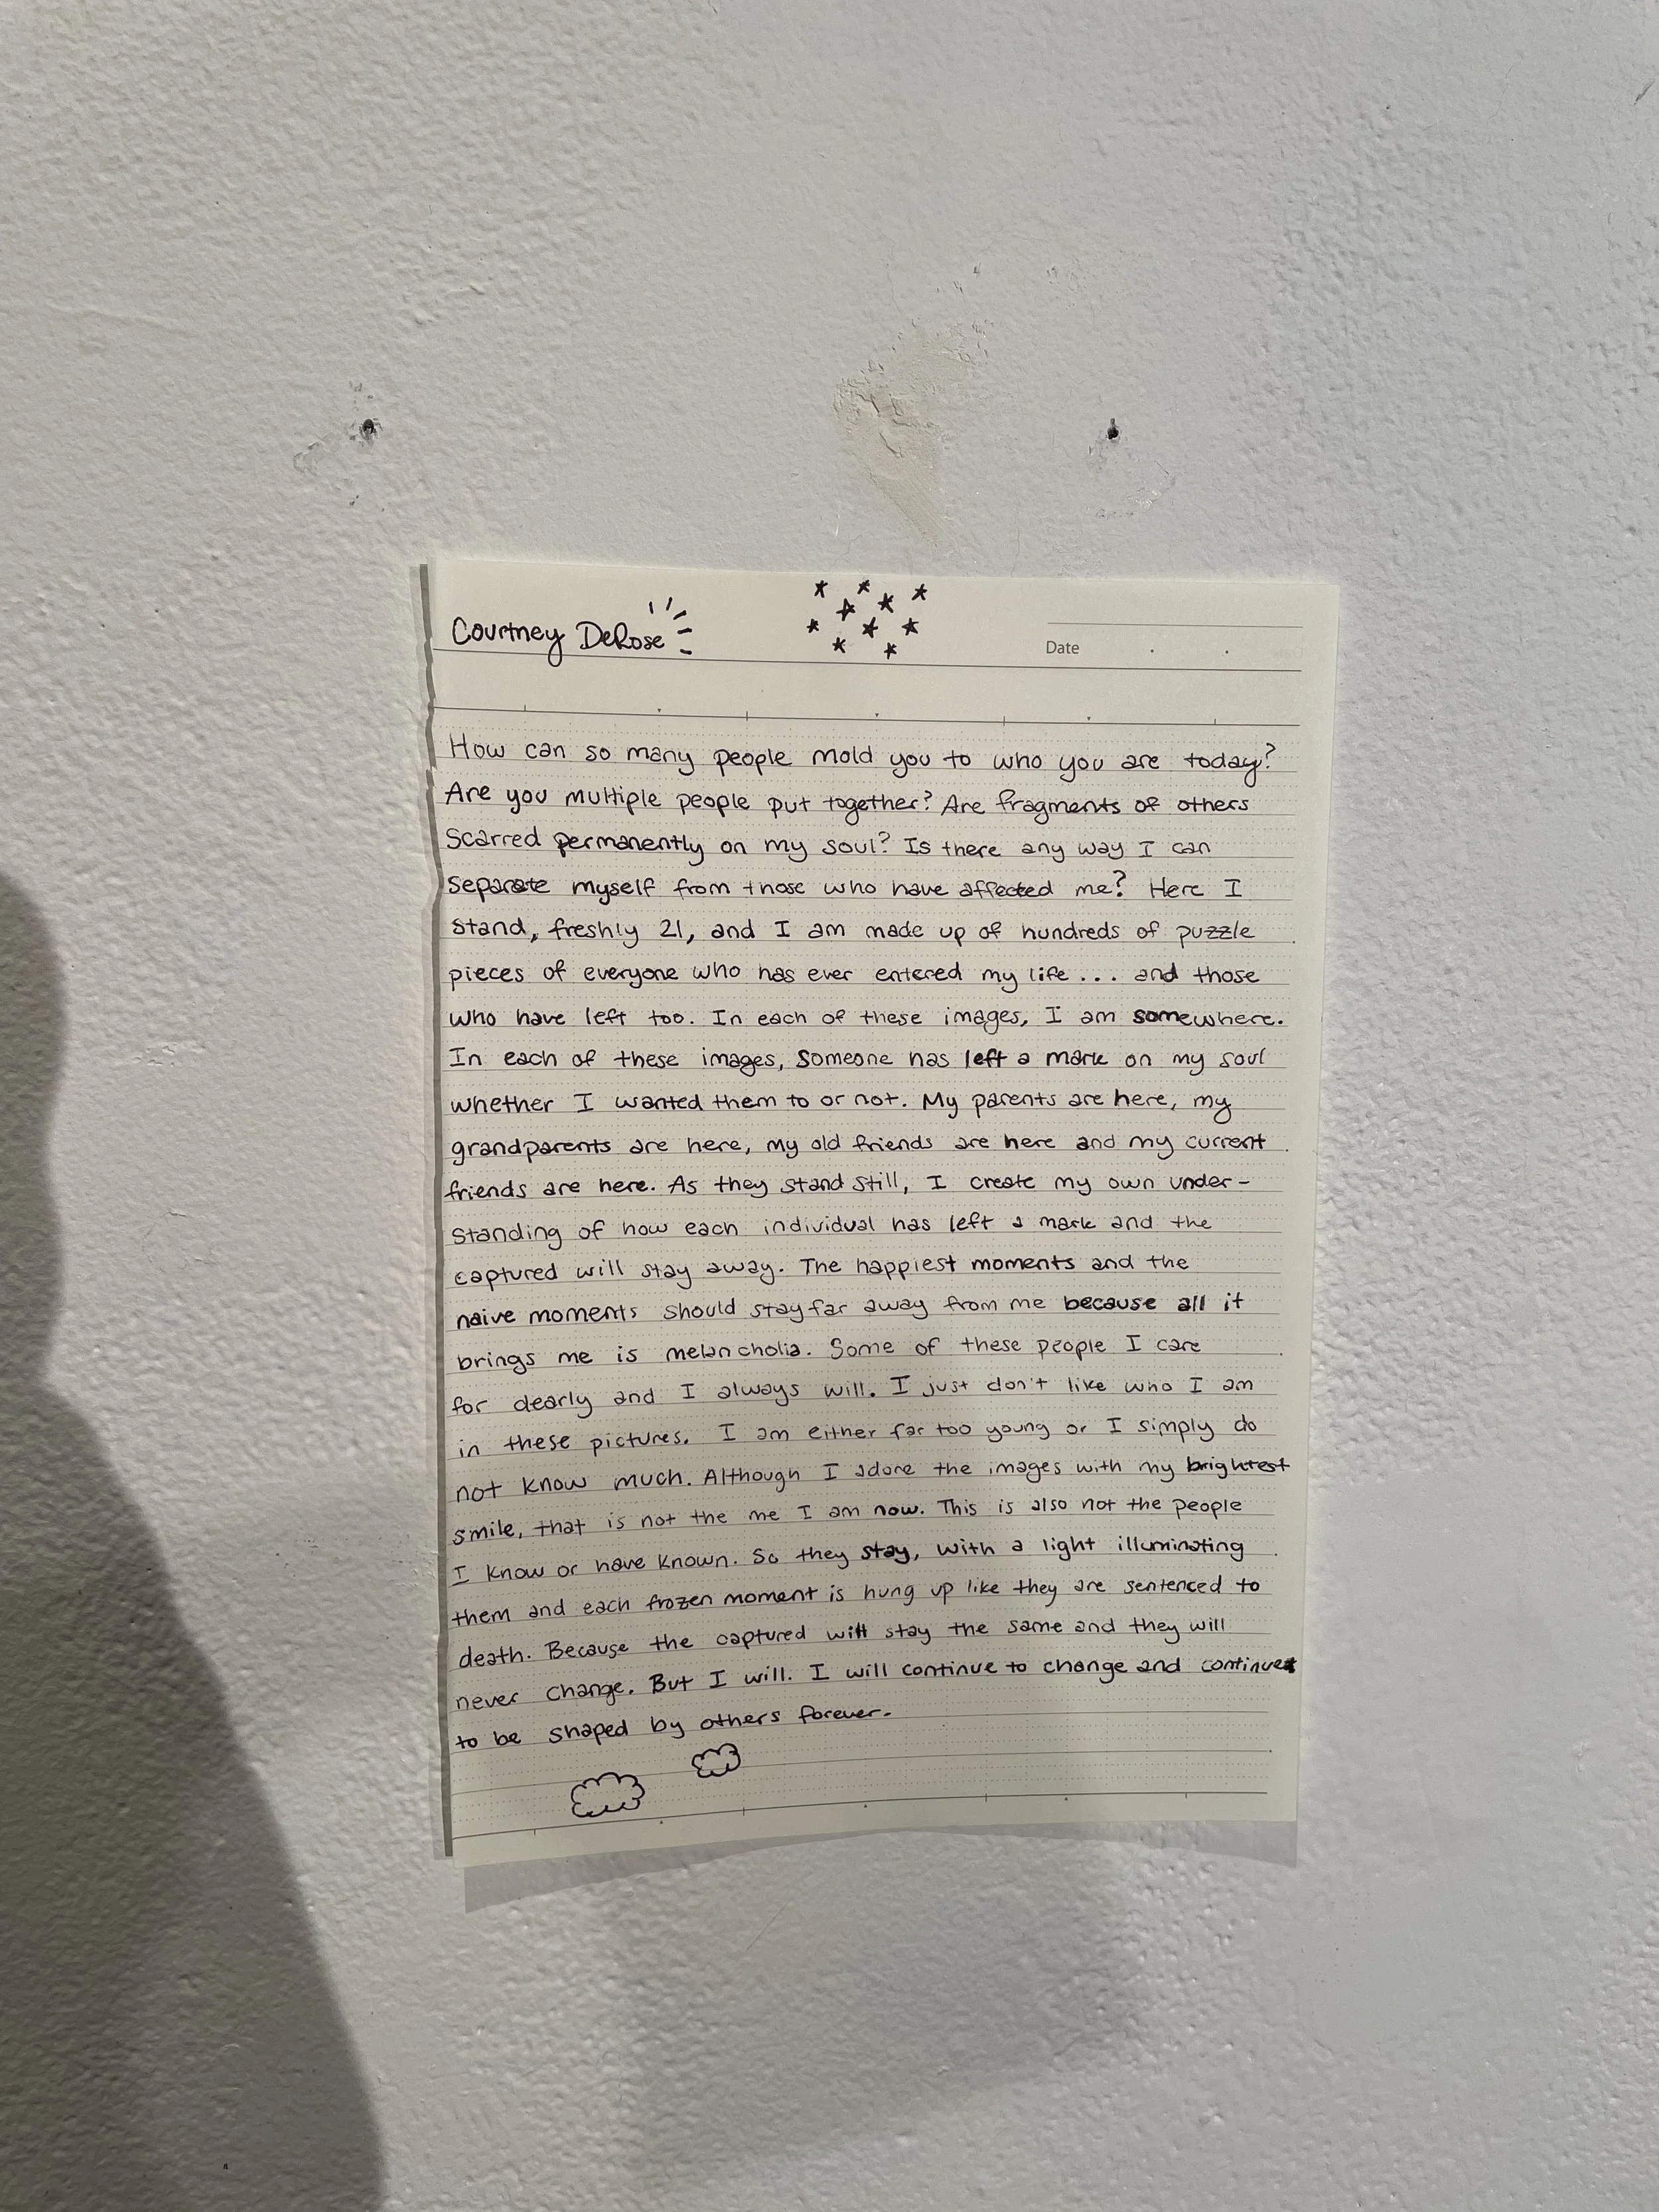 Courtney DeRose
Date
How can so many people mold you to who you are today?
Are you multiple people put together? Are fragments of others
scarred permanently on my soul? Is there any way I can
separate myself from those who have affected me? Here I
stand, freshly 21, and I am made up of hundreds of puzzle
pieces of everyone who has ever entered my life... and those
who have left too. In each of these images, I am somewhere.
In each of these images, someone has left a mark on my soul
whether I wanted them to or not. My parents are here, my
grandparents are here, my old friends are here and my current
friends are here. As they stand still, I create my own under-
standing of how each individual has left a mark and the
captured will stay away. The happiest moments and the
naive moments should stay far away from me because all it
brings me is melancholia. Some of these people I care
for dearly and I always will. I just don't like who I am
in these pictures. I am either far too young or I simply do
not know much. Although I adore the images with my brightest
smile, that is not the me I am now. This is also not the people
I know or have known. So they stay, with a light illuminating
them and each frozen moment is hung up like they are sentenced to
death. Because the captured will stay the same and they will
never change. But I will. I will continue to change and continue
to be shaped by others forever.